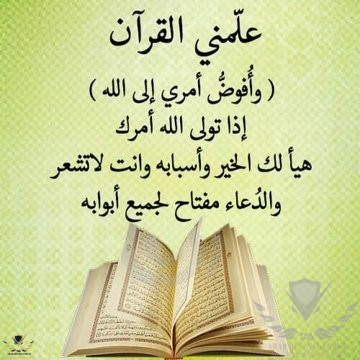 علّمني القرآن
( وأُفوضُّ أمري إلى الله )
إذا تولى الله أمرك
هيأ لك الخير وأسبابه وانت لاتشعر
والدُعاء مفتاح لجميع أبوابه